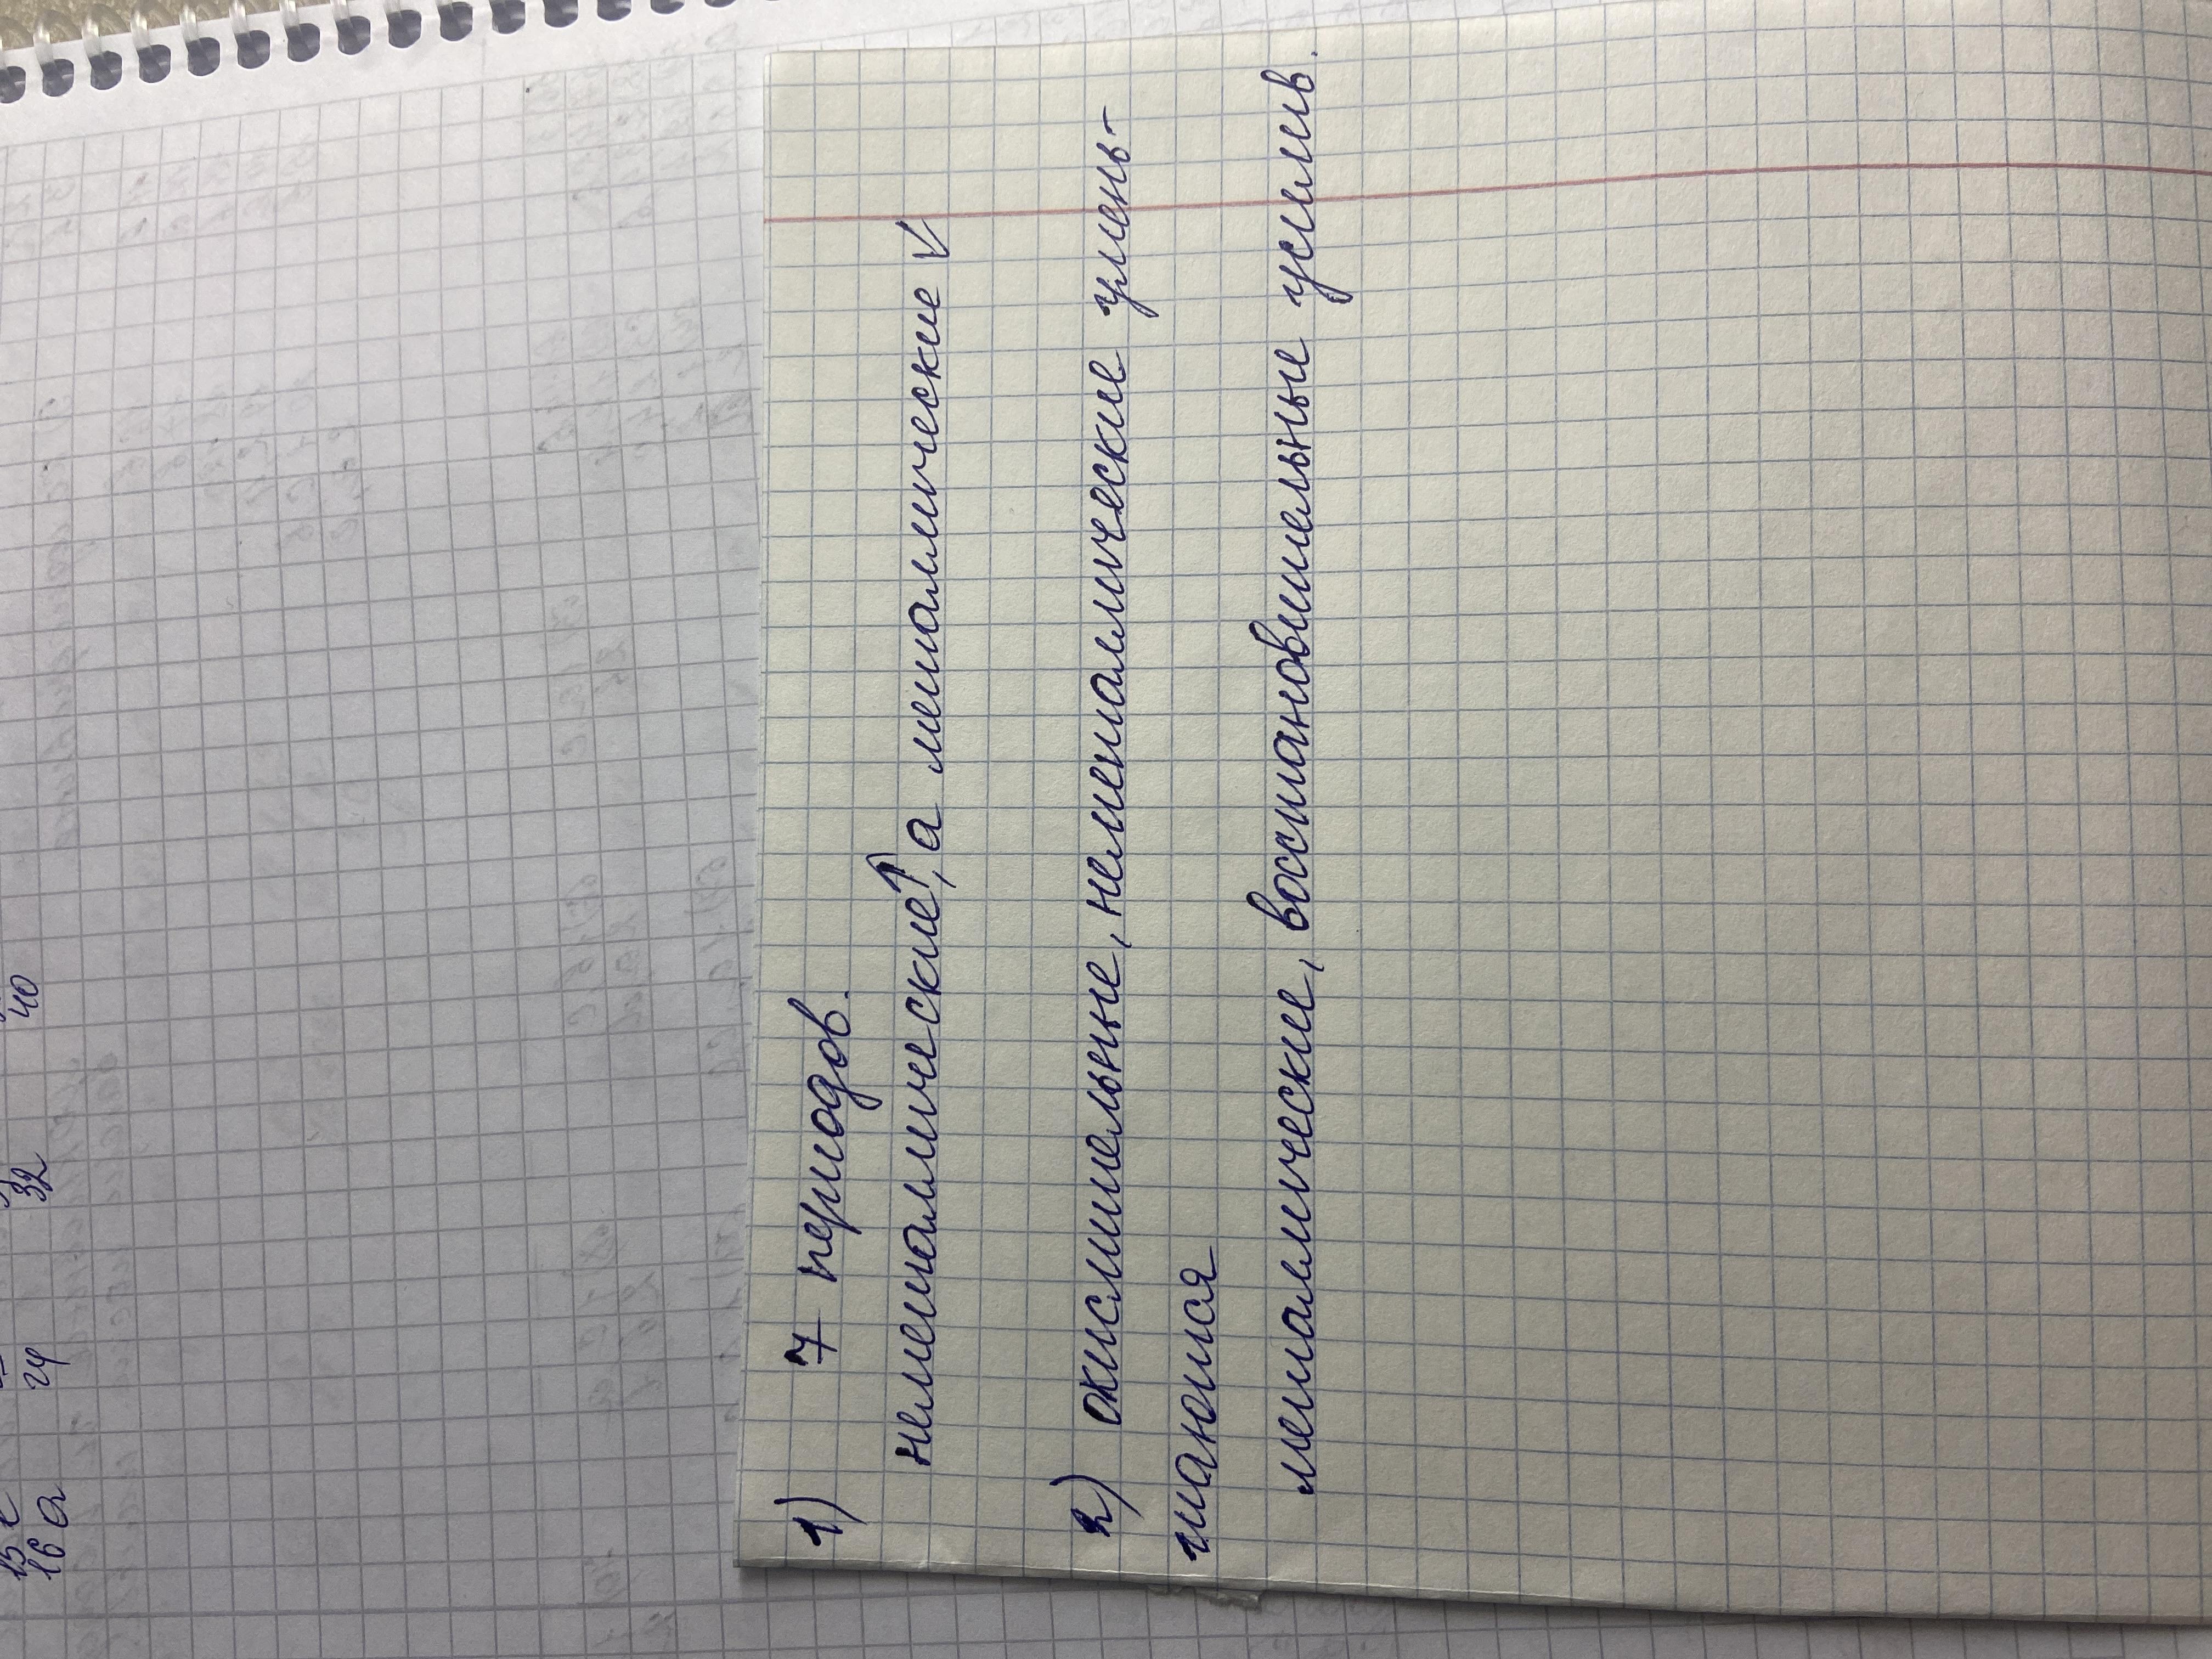 1) 7 периодов.
неметаллические↑, а металлические ↓
2) окислительные, неметаллические умень-
шаются
металлические, восстановительные усилив.
40
32
24
15
16 а